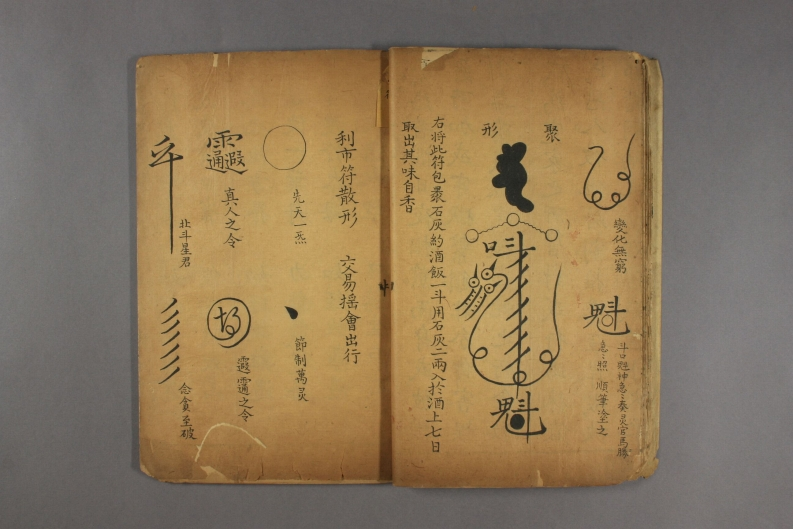 變化無窮
魁
斗口魁神急々奏灵官馬勝
急々照 順筆塗之
聚形
魁
右将此符包裹石灰約酒飯一斗用石灰二兩入於酒上七日
取出其味自香
利市符散形 交易摇會出行
先天一炁
節制萬灵
真人之令
之令
北斗星君
念貪至破